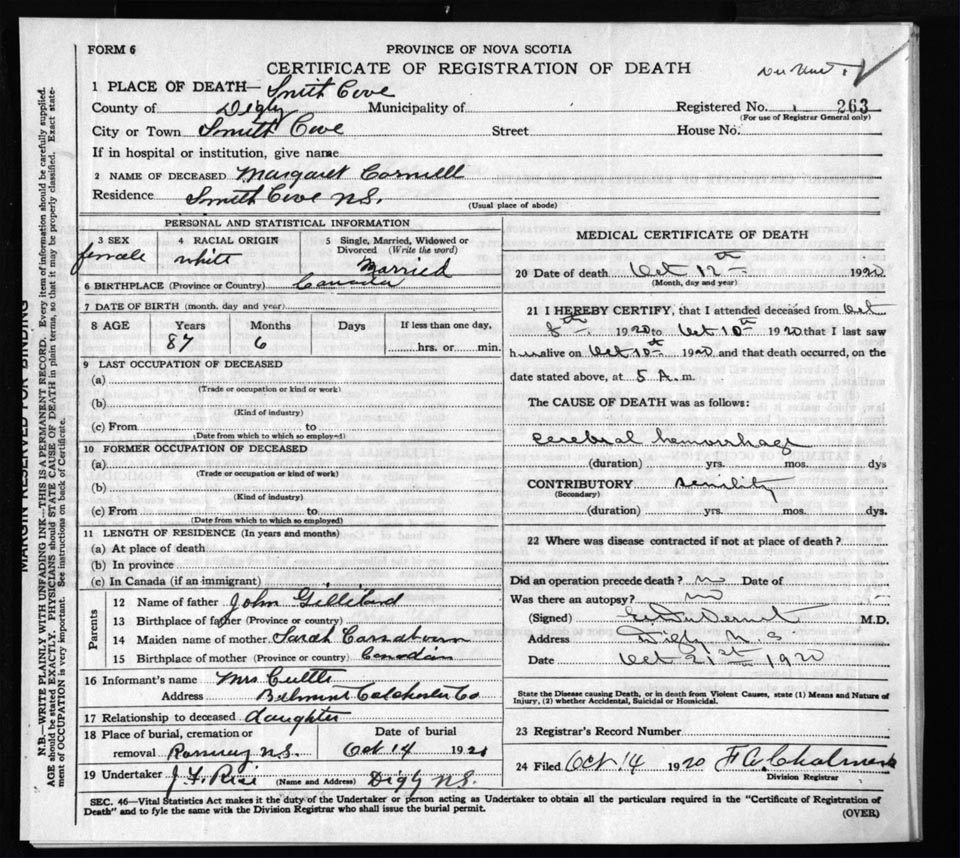 FORM 6
PROVINCE OF NOVA SCOTIA
CERTIFICATE OF REGISTRATION OF DEATH
1 PLACE OF DEATH— Smith Cove
County of Digby Municipality of
Registered No. 263
(For use of Registrar General only)
City or Town Smith Cove Street House No.
If in hospital or institution, give name
2 NAME OF DECEASED Margaret Cornell
Residence Smith Cove N.S.
(Usual place of abode)
PERSONAL AND STATISTICAL INFORMATION
3 SEX 4 RACIAL ORIGIN 5 Single, Married, Widowed or Divorced (Write the word)
female white Married
6 BIRTHPLACE (Province or Country) Canada
7 DATE OF BIRTH (month, day and year)
8 AGE Years Months Days If less than one day,
87 6 hrs. or min.
9 LAST OCCUPATION OF DECEASED
(a)
(Trade or occupation or kind of work)
(b)
(Kind of industry)
(c) From to
(Date from which to which so employed)
10 FORMER OCCUPATION OF DECEASED
(a)
(Trade or occupation or kind of work)
(b)
(Kind of industry)
(c) From to
(Date from which to which so employed)
11 LENGTH OF RESIDENCE (In years and months)
(a) At place of death
(b) In province
(c) In Canada (if an immigrant)
Parents
12 Name of father John
13 Birthplace of father (Province or country)
14 Maiden name of mother Sarah
15 Birthplace of mother (Province or country) Canadian
16 Informant's name Mrs
Address Belmont Colchester Co
17 Relationship to deceased daughter
18 Place of burial, cremation or Date of burial
removal N.S. Oct 14 1920
19 Undertaker J. F. Rice (Name and Address) Digby N.S.
MEDICAL CERTIFICATE OF DEATH
20 Date of death Oct 12th 1920
(Month, day and year)
21 I HEREBY CERTIFY, that I attended deceased from Oct
8th 1920 to Oct 10th 1920 that I last saw
h alive on Oct 10th 1920 and that death occurred, on the
date stated above, at 5 A.m.
The CAUSE OF DEATH was as follows:
cerebral hemorrhage
(duration) yrs. mos. dys
CONTRIBUTORY senility
(Secondary)
(duration) yrs. mos. dys.
22 Where was disease contracted if not at place of death?
Did an operation precede death? no Date of
Was there an autopsy? no
(Signed) M.D.
Address Digby N.S
Date Oct 21st 1920
State the Disease causing Death, or in death from Violent Causes, state (1) Means and Nature of
Injury, (2) whether Accidental, Suicidal or Homicidal.
23 Registrar's Record Number
24 Filed Oct 14 1920
Division Registrar
SEC. 46—Vital Statistics Act makes it the duty of the Undertaker or person acting as Undertaker to obtain all the particulars required in the "Certificate of Registration of
Death" and to fyle the same with the Division Registrar who shall issue the burial permit.
(OVER)
MARGIN RESERVED FOR BINDING
N.B.—WRITE PLAINLY WITH UNFADING INK—THIS IS A PERMANENT RECORD. Every item of information should be carefully supplied.
AGE should be stated EXACTLY. PHYSICIANS should STATE CAUSE OF DEATH in plain terms, so that it may be properly classified. Exact state-
ment of OCCUPATION is very important. See instructions on back of Certificate.